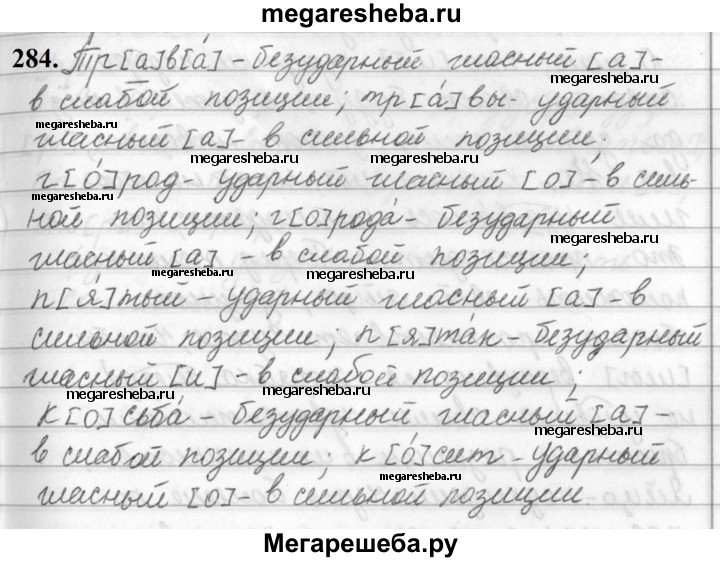 megaresheba.ru
284. Тр[а]в[а́] - безударный гласный [а] -
в слабой позиции; тр[а́]вы - ударный
megaresheba.ru
megaresheba.ru
гласный [а] - в сильной позиции.
megaresheba.ru
megaresheba.ru
г[о́]род - ударный гласный [о] - в силь-
ной позиции; г[о]рода́ - безударный
гласный [а] - в слабой позиции;
megaresheba.ru
megaresheba.ru
п[я́]тый - ударный гласный [а] - в
сильной позиции; п[я]та́к - безударный
гласный [и] - в слабой позиции;
megaresheba.ru
к[о]сьба́ - безударный гласный [а] -
megaresheba.ru
в слабой позиции; к[о́]сит - ударный
megaresheba.ru
гласный [о] - в сильной позиции.
Мегарешеба.ру